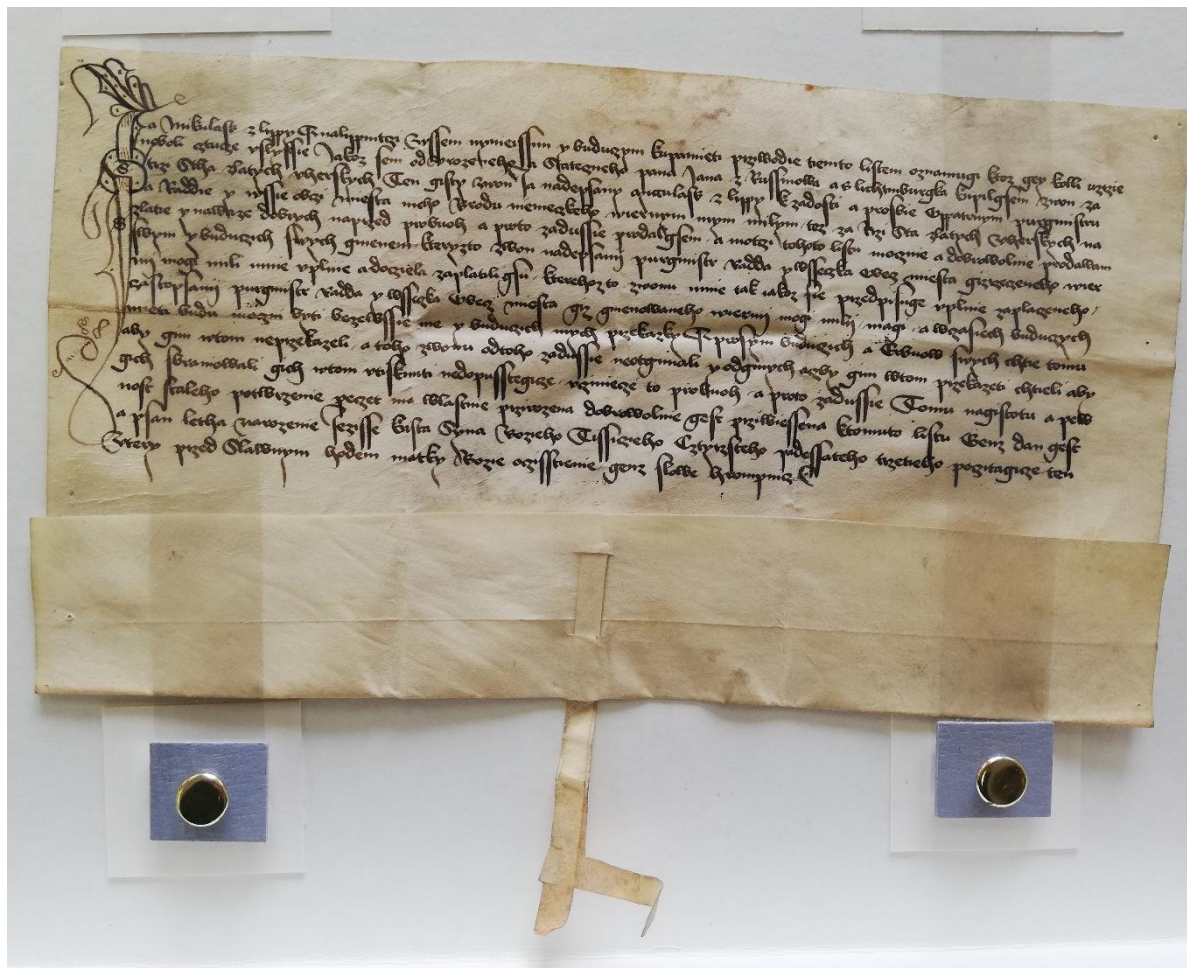 Ja Mikulass z lippy Trnalippnitzi Wssem nyneissim y buduczym kupamieti prziwodie tiemto listem oznamugi ktoz gey kolli uzrzie
neboli cztucze uslyssie Jakoz sem od urozeneho a Stateczneho pana Jana z Russinowa a z lichtmburgka kupilgsem zwon za
trzi Stha zlatych vherskych Ten gisty zwon Ja nadepsany Miculass z lippy k zadosti a prosbie Oppatrnym purgmistru
a Raddie y wssie obcy Miesta meho Brodu niemeczkeho wiernym mym milym toz za trzi Sta zlatych Vherskych na
zlatie y nawaze dobrych naprzed probuoh a proto zadussie prodalgsem a motzi tohoto listu moczne a dobrowolnie prodawam
swym y buduczich swych gmenem kteryzto zwon nadepsani purgmistr Radda y wsseczka Obecz miesta girzeczeneho wier
nij mogi mili mnie vplnie a doziela zaplatiligsu kterehozto zwonu mnie tak iakoz sie przedpisuge vplnie zaplaczeneho
zastopsanij purgmistr Radda y wsseczka Obecz miesta giz gmenowaneho wiernij mogi milij magi a wczasiech buduczych
mieti budu moczni byti bezewssie me y buduczich mych przekazky Tez prosym buduczich a Erbuow swych chtie tomu
aby gim wtom neprzekazeli a toho zwonu odtoho zadussie neotgimali y odginych aczby gim wtom przekazeti chtieli aby
gich sbraniowali gich wtom vtisknuti nedopusstiegicze vcziniecze to probuoh a proto zadussie Tomu nagistotu a pew
nost staleho potwrzenie peczet ma wlastnie przirozena dobrowolnie gest priwiessena ktomuto listu Genz dan gest
a psan letha narozenie Jezisse krista Syna Bozieho Tissiczieho Cztyrzsteho padessateho trzetieho pocztagicze ten
Vtery przed Slawnym hodem matky Bozie oczisstienie genz slowe hromnicz